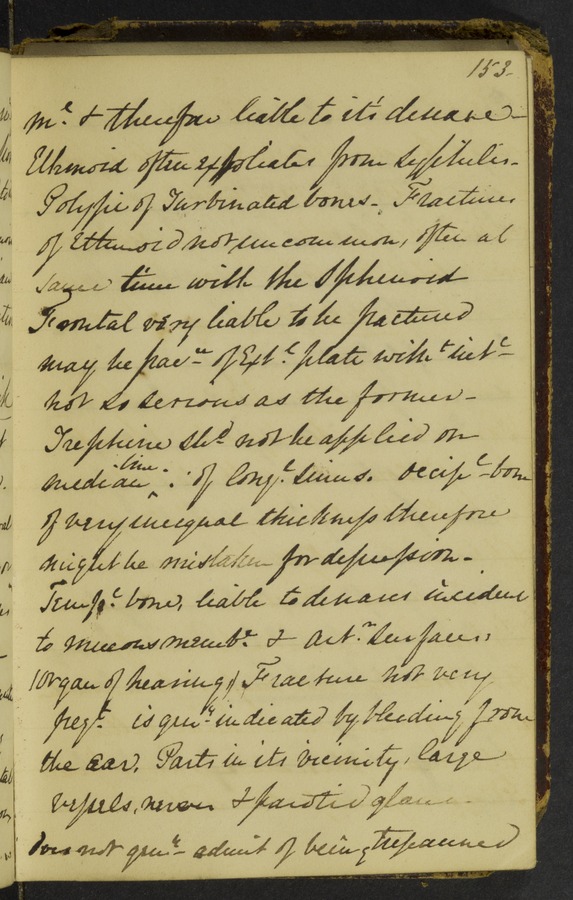 153.
me. & therefore liable to it's disease -
Ethmoid often exfoliates from Syphilis -
Polypi of Turbinated bones - Fractures
of Ethmoid not uncommon, often at
same time with the Sphenoid
Frontal very liable to be fractured
may be frac~ of Ext.l plate with.t
not so serious as the former -
Trephine sh.d not be applied on
median line ∴ of long.l sinus. occip.l bone
of very unequal thickness therefore
might be mistaken for depression -
Temp.l bone, liable to diseases incident
to mucous memb.e & art.r surfaces
(organ of hearing) Fracture not very
freq.t is gen.y indicated by bleeding from
the ear. Parts in its vicinity, large
vessels, nerves & parotid gland
does not gen.y admit of being trepanned